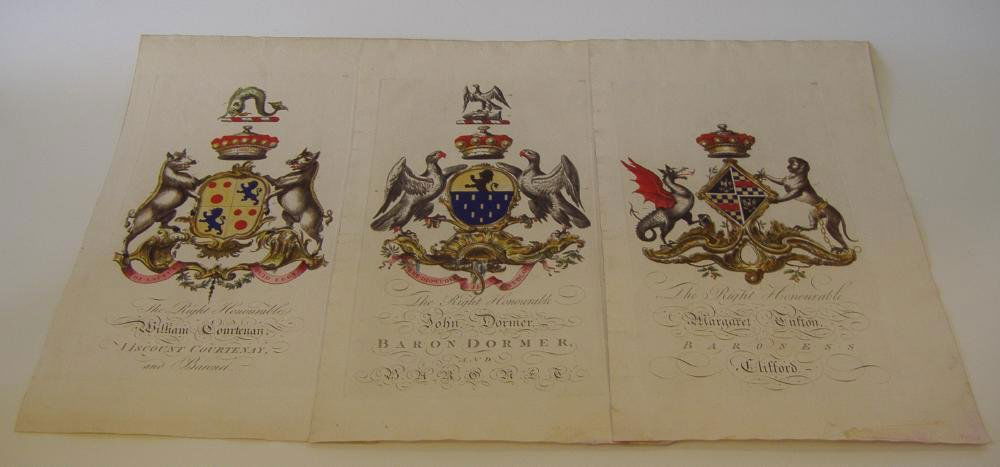 The Right Honourable
William Courtenay,
VISCOUNT COURTENAY,
and Baronet
The Right Honourable
John Dormer,
BARON DORMER,
AND
BARONET
The Right Honourable
Margaret Tufton,
BARONESS
Clifford